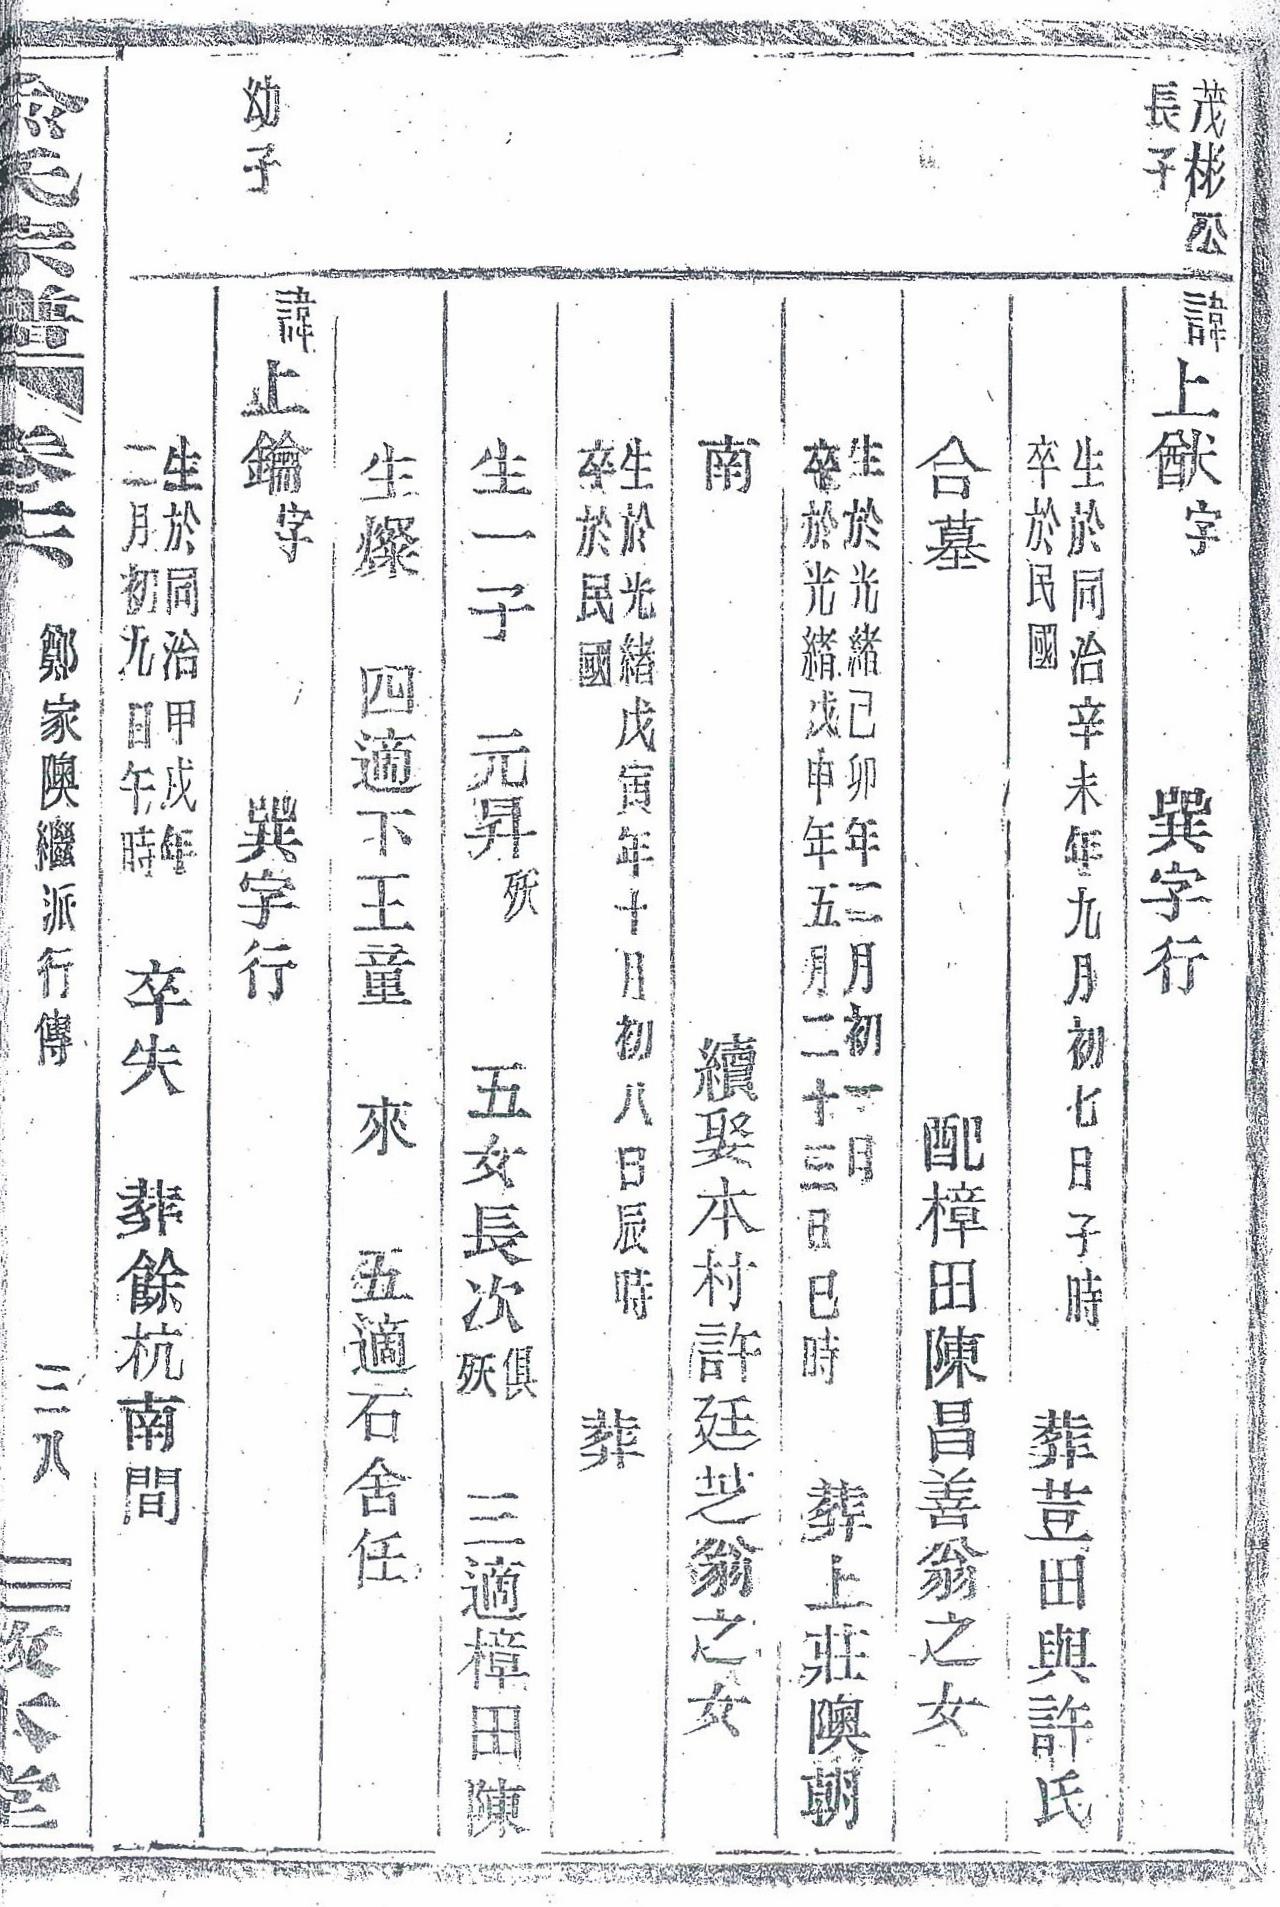 茂彬公
長子
諱上猷字 巽字行
生於同治辛未年九月初七日子時
卒於民國
葬荳田與許氏
合墓 配樟田陳昌善翁之女
生於光緒己卯年二月初一日
卒於光緒戊申年五月二十三日巳時
葬上莊隩朝
南 續娶本村許廷芝翁之女
生於光緒戊寅年十月初八日辰時
卒於民國
葬
生一子 元昇殀 五女長次俱殀 三適樟田陳
生燦 四適下王童 來 五適石舍任
幼子
諱上鑰字 巽字行
生於同治甲戌年
二月初九日午時
卒失 葬餘杭南間
俞氏宗譜 卷六 鄭家隩繼派行傳 三八 敦本堂